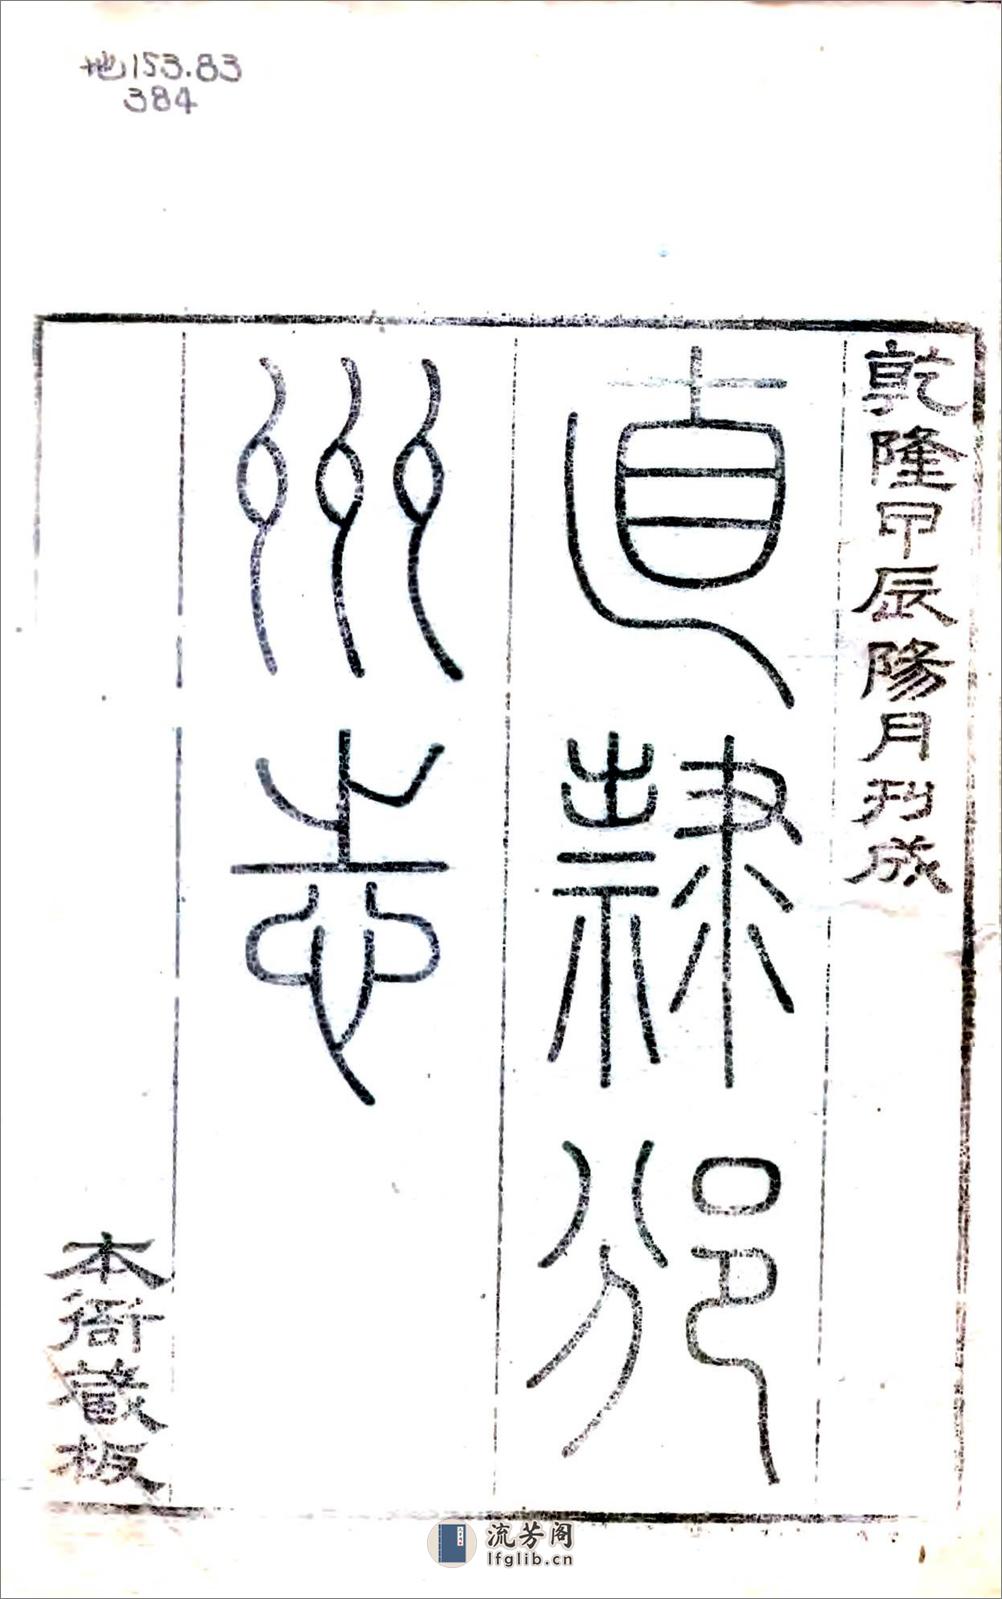 地153.83
384
乾隆甲辰陽月刊成
直隸邠
州志
本衙藏板
流芳阁
lfglib.cn